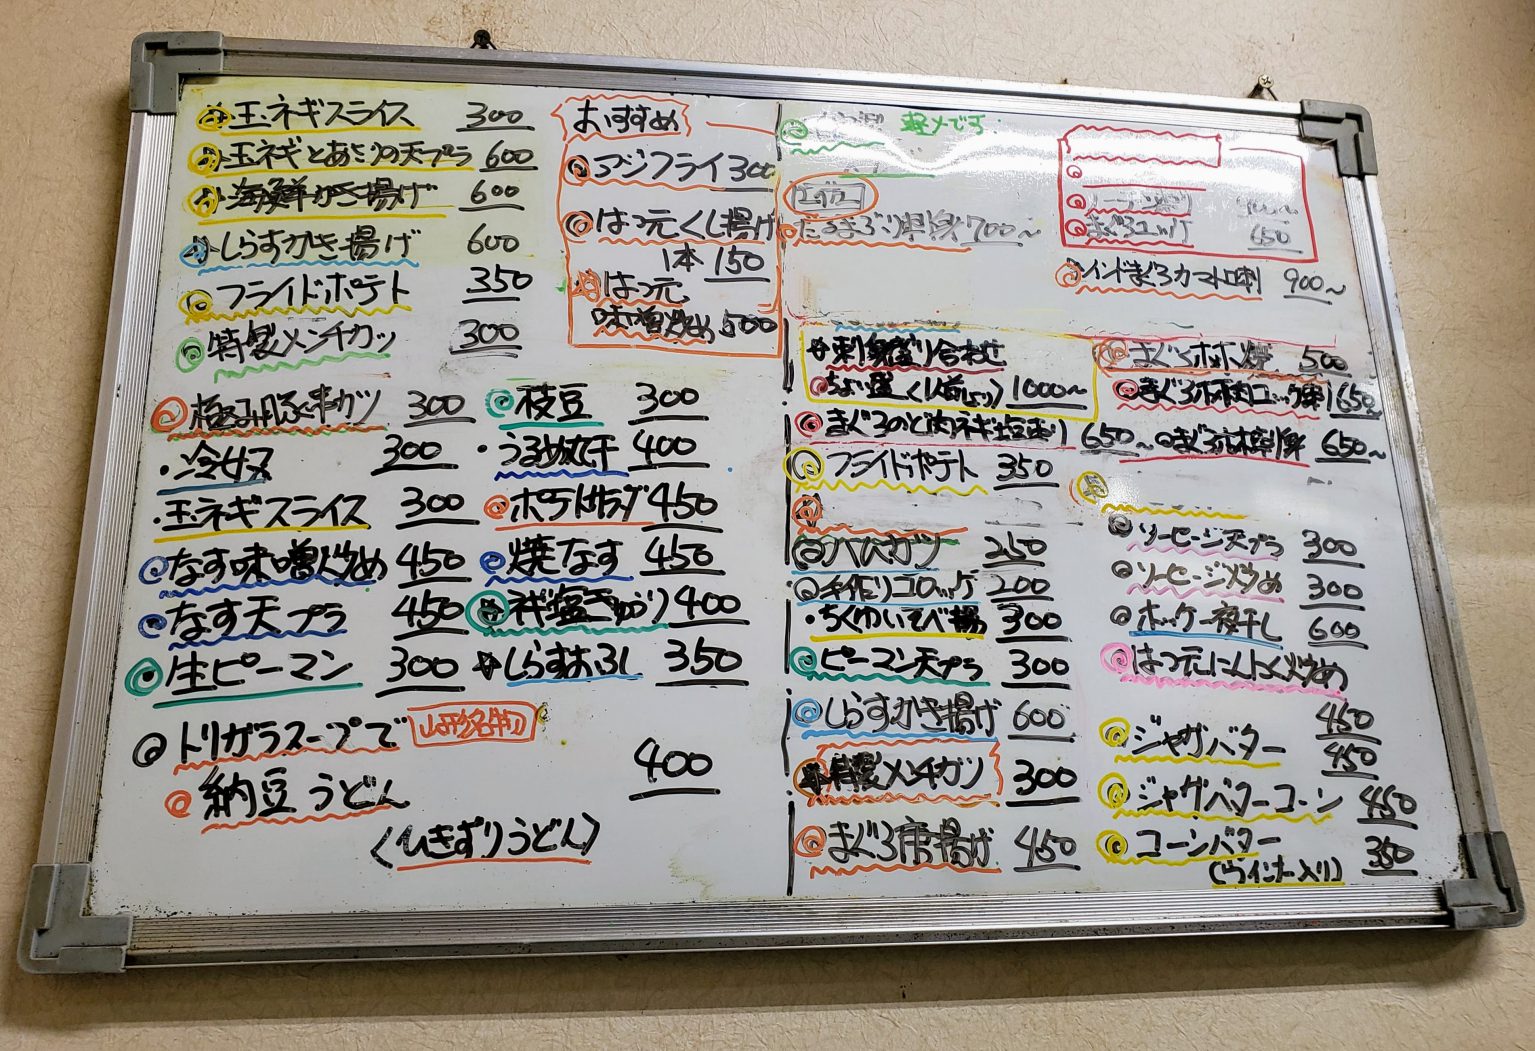 玉ネギスライス 300
玉ネギとあさりの天プラ 600
海鮮かき揚げ 600
しらすかき揚げ 600
フライドポテト 350
特製メンチカツ 300
おすすめ
アジフライ 300
はつ元くし揚げ
1本 150
はつ元
味噌炒め 500
串カツ 300
冷ヤッコ 300
玉ネギスライス 300
なす味噌炒め 450
なす天プラ 450
生ピーマン 300
枝豆 300
うるめ丸干 400
ポテトサラダ 450
焼なす 450
きゅうり 400
しらすおろし 350
トリガラスープで 山形名物
納豆うどん 400
(ひきずりうどん)
軽〆です
700〜
まぐろユッケ 650
インドまぐろカマトロ刺 900〜
刺身盛り合わせ
ちょい盛 (1人前より) 1000〜
まぐろのど肉ネギ塩あぶり 650〜
まぐろホホ焼 500
まぐろホホ肉ユッケ 650
まぐろ 650〜
フライドポテト 350
ハムカツ 250
手作りコロッケ 200
ちくわいそべ揚 300
ピーマン天プラ 300
しらすかき揚げ 600
特製メンチカツ 300
まぐろ唐揚げ 450
ソーセージ天プラ 300
ソーセージ炒め 300
ホッケ一夜干し 600
はつ元にんにく炒め
450
ジャガバター 450
ジャガバターコーン 450
コーンバター
(ウインナー入り) 350